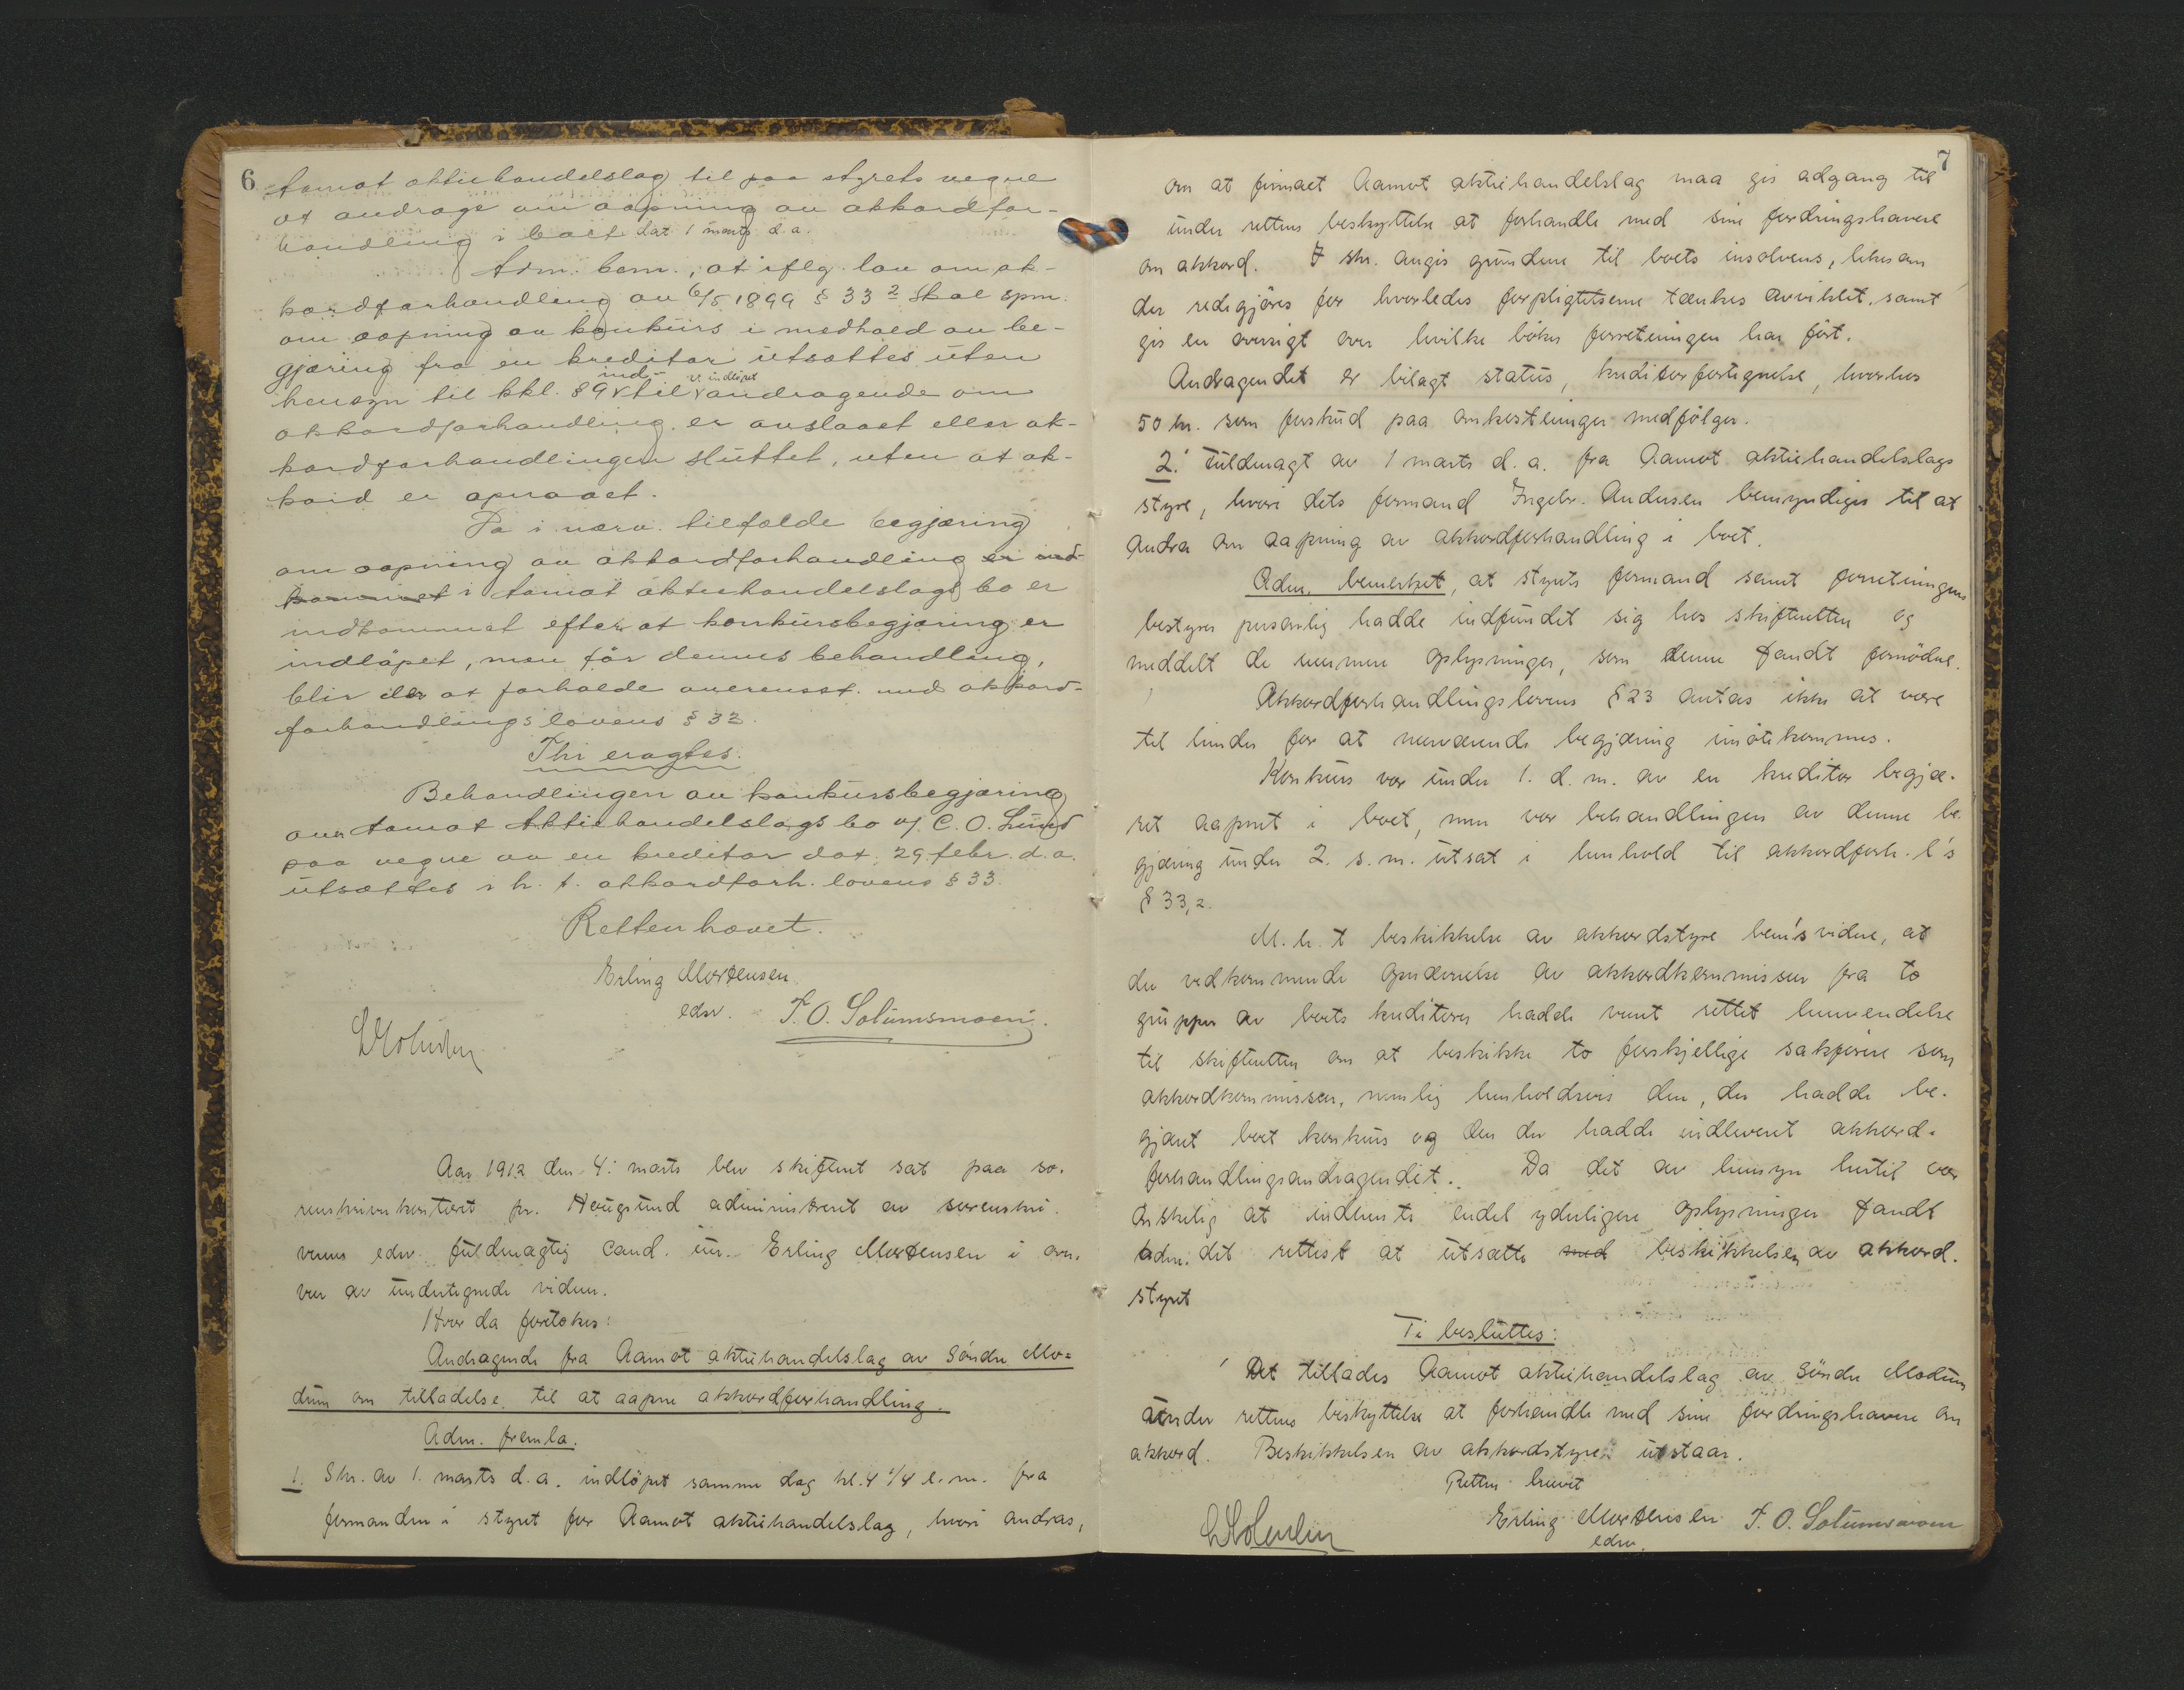 6
Aamot aktiehandelslag til paa styrets vegne
at andrage om aapning av akkordfor-
handling i boet dat 1 marts d. a.
Adm. bem., at iflg. lov om ak-
kordforhandling av 6/5 1899 § 33 2 skal spm.
om aapning av konkurs i medhold av be-
gjæring fra en kreditor utsættes uten
ind- v. indløpet
hensyn til kkl. 89 til andragende om
akkordforhandling er avslaaet eller ak-
kordforhandlingen sluttet, uten at ak-
kord er opnaaet.
Da i nærv. tilfælde begjæring
om aapning av akkordforhandling er ind-
kommet i Aamot aktiehandelslags bo er
indkommet efter at konkursbegjæring er
indløpet, men før dennes behandling,
blir der at forholde overensst. med akkord-
forhandlingslovens § 33.
Thi eragtes:
Behandlingen av konkursbegjæring
over Aamot Aktiehandelslags bo v/ C. O. Lund
paa vegne av en kreditor dat. 29. febr. d. a.
utsættes i h. t. akkordforh. lovens § 33.
Retten hævet.
Erling Mortensen
edsv. F. O. Solumsmoen.
Aar 1912 den 4: marts blev skifteret sat paa so-
renskriverkontoret pr. Haugsund administreret av sorenskri-
verens edsv. fuldmægtig cand. jur. Erling Mortensen i over-
vær av undertegnede vidner.
Hvor da foretokes:
Andragende fra Aamot aktiehandelslag av Søndre Mo-
dum om tilladelse til at aapne akkordforhandling.
Adm. fremla:
1. Skr. av 1. marts d. a. indløpet samme dag kl. 4 1/4 e. m. fra
formanden i styret for Aamot aktiehandelslag, hvori andras,
7
om at firmaet Aamot aktiehandelslag maa gis adgang til
under rettens beskyttelse at forhandle med sine fordringshavere
om akkord. I skr. angis grundene til boets insolvens, likesom
der redegjøres for hvorledes forpligtelserne tænkes avviklet, samt
gis en oversigt over hvilke bøker forretningen har ført.
Andragendet er bilagt status, kreditorfortegnelse, hvorhos
50 kr. som forskud paa omkostninger medfølger.
2. Fuldmagt av 1 marts d. a. fra Aamot aktiehandelslags
styre, hvori dets formand Ingebr. Andersen bemyndiges til at
andra om aapning av akkordforhandling i boet.
Adm. bemerket, at styrets formand samt forretningens
bestyrer personlig hadde indfundet sig hos skifteretten og
meddelt de nærmere oplysninger, som denne fandt fornødne.
Akkordforhandlingslovens § 23 antas ikke at være
til hinder for at nærværende begjæring imøtekommes.
Konkurs var under 1. d. m. av en kreditor begjæ-
ret aapnet i boet, men var behandlingen av denne be-
gjæring under 2. s. m. utsat i henhold til akkordforh. l's
§ 33,2.
M. h. t. beskikkelse av akkordstyre bem's videre, at
der vedkommende opnævnelse av akkordkommissær fra to
grupper av boets kreditorer hadde været rettet henvendelse
til skifteretten om at beskikke to forskjellige sakførere som
akkordkommissær, nemlig henholdsvis den, der hadde be-
gjæret boet konkurs og den der hadde indleveret akkord-
forhandlingsandragendet. Da det av hensyn hertil var
ønskelig at indhente endel yderligere oplysninger fandt
adm. det rettest at utsætte med beskikkelsen av akkord-
styret
Ti besluttes:
Det tillades Aamot aktiehandelslag av Søndre Modum
under rettens beskyttelse at forhandle med sine fordringshavere om
akkord. Beskikkelsen av akkordstyre utstaar.
Retten hævet
Erling Mortensen F. O. Solumsmoen
edsv.